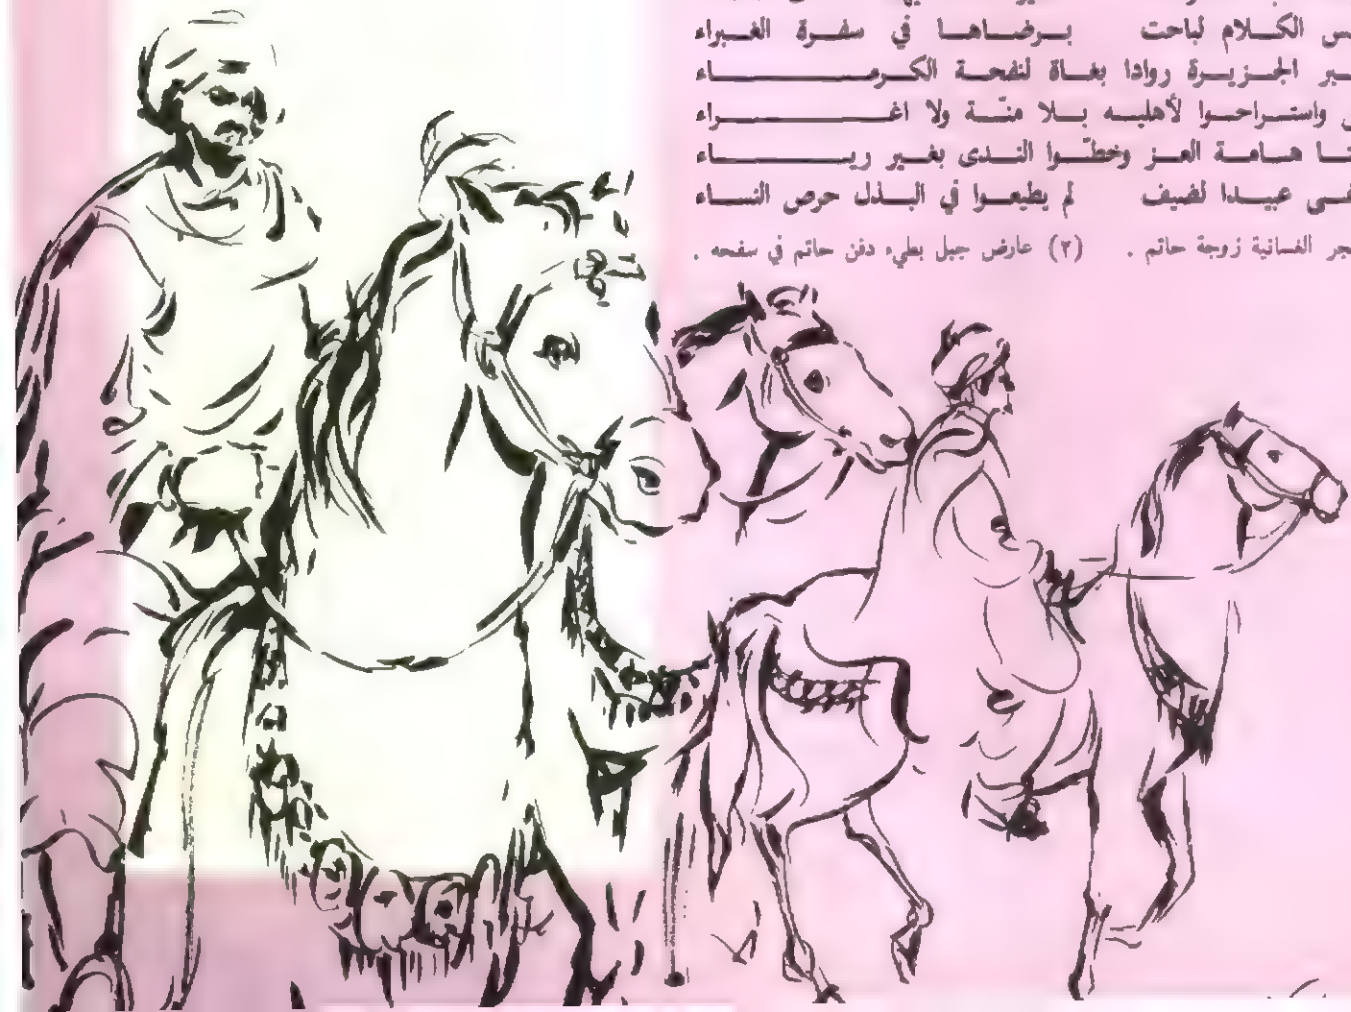 س الكلام لباحت برضاها في سفرة الغبراء
بر الجزيرة روادا بغاة لنفحة الكرماء
واستراحوا لأهليه بلا منّة ولا اغراء
نا هامة العز وخطّوا الندى بغير رياء
فى عبيدا لضيف لم يطيعوا في البذل حرص النساء
جر الغسانية زوجة حاتم . (٢) عارض جبل بطيء دفن حاتم في سفحه .